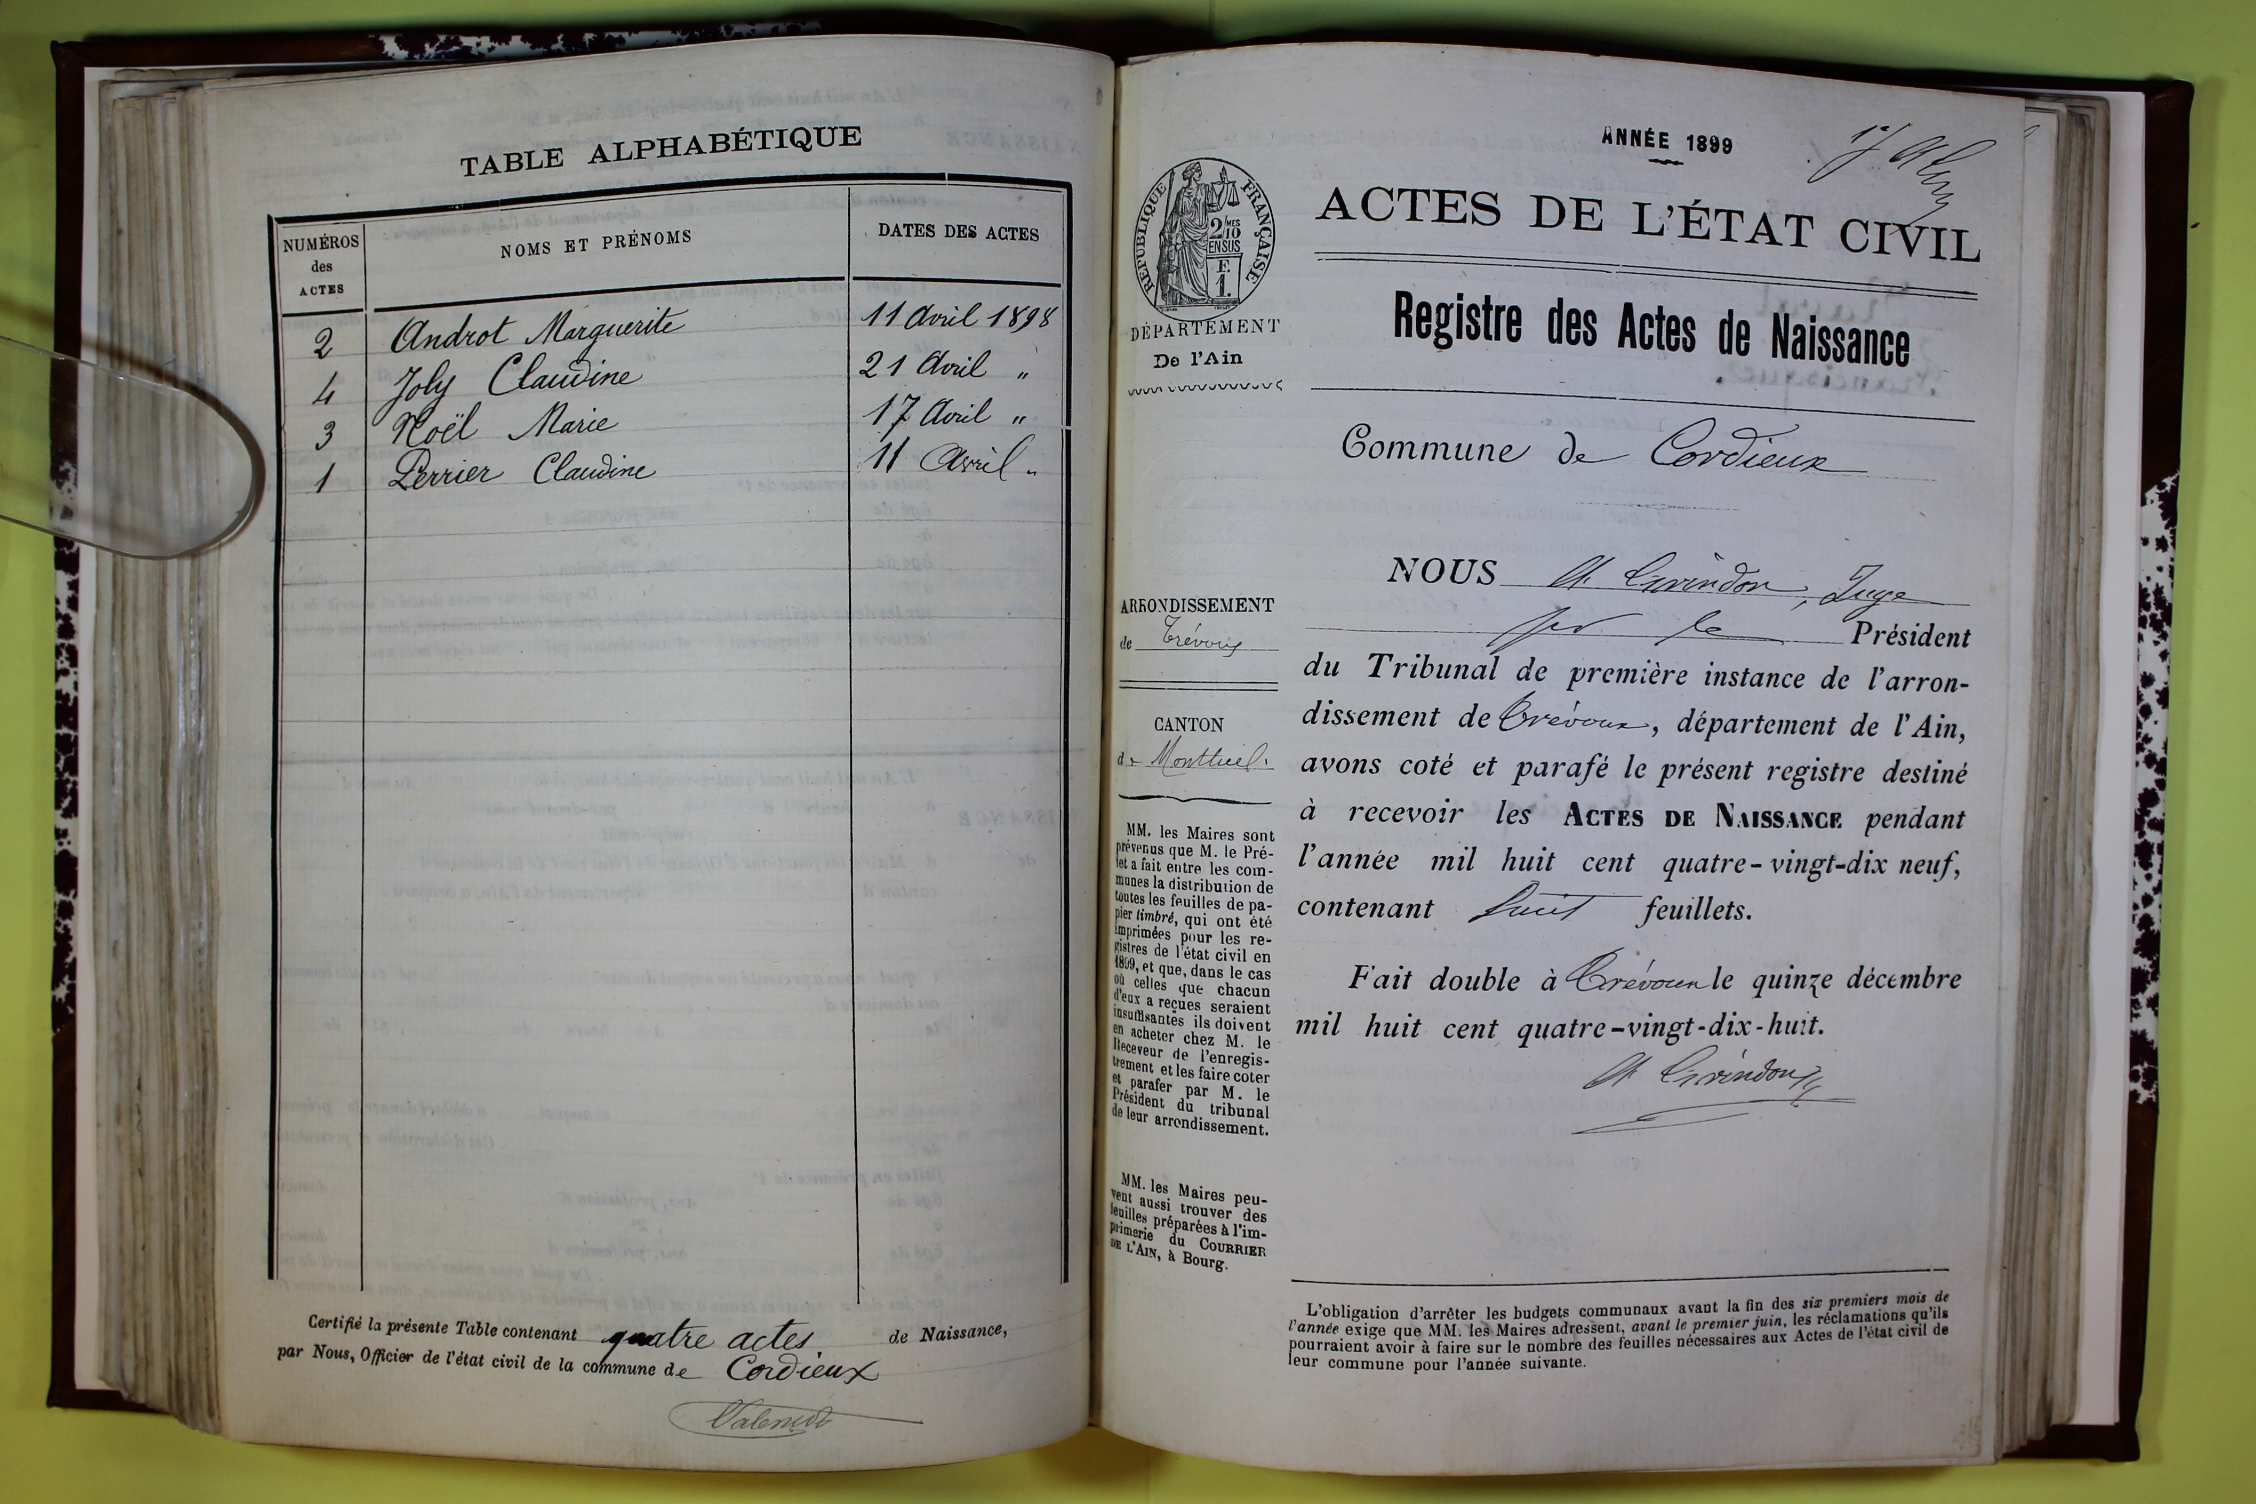 TABLE ALPHABÉTIQUE
NUMÉROS
des
ACTES
NOMS ET PRÉNOMS
DATES DES ACTES
2 Androt Marguerite 11 Avril 1898
4 Joly Claudine 21 Avril "
3 Noël Marie 17 Avril "
1 Perrier Claudine 11 Avril "
Certifié la présente Table contenant quatre actes de Naissance,
par Nous, Officier de l'état civil de la commune de Cordieux
ANNÉE 1899
RÉPUBLIQUE FRANÇAISE
2/10 MES
EN SUS
F.
1.
DÉPARTEMENT
De l'Ain
ARRONDISSEMENT
de Trévoux
CANTON
de Montluel.
MM. les Maires sont
prévenus que M. le Pré-
fet a fait entre les com-
munes la distribution de
toutes les feuilles de pa-
pier timbré, qui ont été
imprimées pour les re-
gistres de l'état civil en
1899, et que, dans le cas
où celles que chacun
d'eux a reçues seraient
insuffisantes ils doivent
en acheter chez M. le
Receveur de l'enregis-
trement et les faire coter
et parafer par M. le
Président du tribunal
de leur arrondissement.
MM. les Maires peu-
vent aussi trouver des
feuilles préparées à l'im-
primerie du COURRIER
DE L'AIN, à Bourg.
ACTES DE L'ÉTAT CIVIL
Registre des Actes de Naissance
Commune de Cordieux
NOUS Juge
le Président
du Tribunal de première instance de l'arron-
dissement de Trévoux, département de l'Ain,
avons coté et parafé le présent registre destiné
à recevoir les ACTES DE NAISSANCE pendant
l'année mil huit cent quatre-vingt-dix neuf,
contenant huit feuillets.
Fait double à Trévoux le quinze décembre
mil huit cent quatre-vingt-dix-huit.
L'obligation d'arrêter les budgets communaux avant la fin des six premiers mois de
l'année exige que MM. les Maires adressent, avant le premier juin, les réclamations qu'ils
pourraient avoir à faire sur le nombre des feuilles nécessaires aux Actes de l'état civil de
leur commune pour l'année suivante.